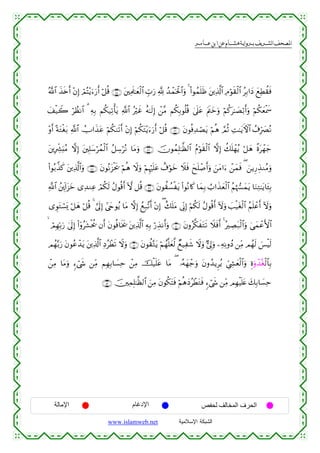 المصحف الشريف برواية هشام عن ابن عامر
فَقُطِعَ دَابِرُ ٱلْقَوْمِ ٱلَّذِينَ ظَلَمُوا۟ ۚ وَٱلْحَمْدُ لِلَّهِ رَبِّ ٱلْعَٰلَمِينَ قُلْ أَرَءَيْتُمْ إِنْ أَخَذَ ٱللَّهُ
سَمْعَكُمْ وَأَبْصَٰرَكُمْ وَخَتَمَ عَلَىٰ قُلُوبِكُم مَّنْ إِلَٰهٌ غَيْرُ ٱللَّهِ يَأْتِيكُم بِهِ ۗ ٱنظُرْ كَيْفَ
نُصَرِّفُ ٱلْءَايَٰتِ ثُمَّ هُمْ يَصْدِفُونَ قُلْ أَرَءَيْتَكُمْ إِنْ أَتَىٰكُمْ عَذَابُ ٱللَّهِ بَغْتَةً أَوْ
جَهْرَةً هَلْ يُهْلَكُ إِلَّا ٱلْقَوْمُ ٱلظَّٰلِمُونَ وَمَا نُرْسِلُ ٱلْمُرْسَلِينَ إِلَّا مُبَشِّرِينَ
وَمُنذِرِينَ ۖ فَمَنْ ءَامَنَ وَأَصْلَحَ فَلَا خَوْفٌ عَلَيْهِمْ وَلَا هُمْ يَحْزَنُونَ وَٱلَّذِينَ كَذَّبُوا۟
بِـَٔايَٰتِنَا يَمَسُّهُمُ ٱلْعَذَابُ بِمَا كَانُوا۟ يَفْسُقُونَ قُل لَّا أَقُولُ لَكُمْ عِندِى خَزَائِنُ ٱللَّهِ
وَلَا أَعْلَمُ ٱلْغَيْبَ وَلَا أَقُولُ لَكُمْ إِنِّى مَلَكٌ ۖ إِنْ أَتَّبِعُ إِلَّا مَا يُوحَىٰ إِلَىَّ ۚ قُلْ هَلْ يَسْتَوِى
ٱلْأَعْمَىٰ وَٱلْبَصِيرُ ۚ أَفَلَا تَتَفَكَّرُونَ وَأَنذِرْ بِهِ ٱلَّذِينَ يَخَافُونَ أَن يُحْشَرُوا۟ إِلَىٰ رَبِّهِمْ ۙ
لَيْسَ لَهُم مِّن دُونِهِ وَلِىٌّ وَلَا شَفِيعٌ لَّعَلَّهُمْ يَتَّقُونَ وَلَا تَطْرُدِ ٱلَّذِينَ يَدْعُونَ رَبَّهُم
بِٱلْغُدْوَةِ وَٱلْعَشِىِّ يُرِيدُونَ وَجْهَهُ ۖ مَا عَلَيْكَ مِنْ حِسَابِهِم مِّن شَىْءٍ وَمَا مِنْ
حِسَابِكَ عَلَيْهِم مِّن شَىْءٍ فَتَطْرُدَهُمْ فَتَكُونَ مِنَ ٱلظَّٰلِمِينَ
الحرف المخالف لحفص الإدغام الإمالة
الشبكة الإسلامية www.islamweb.net